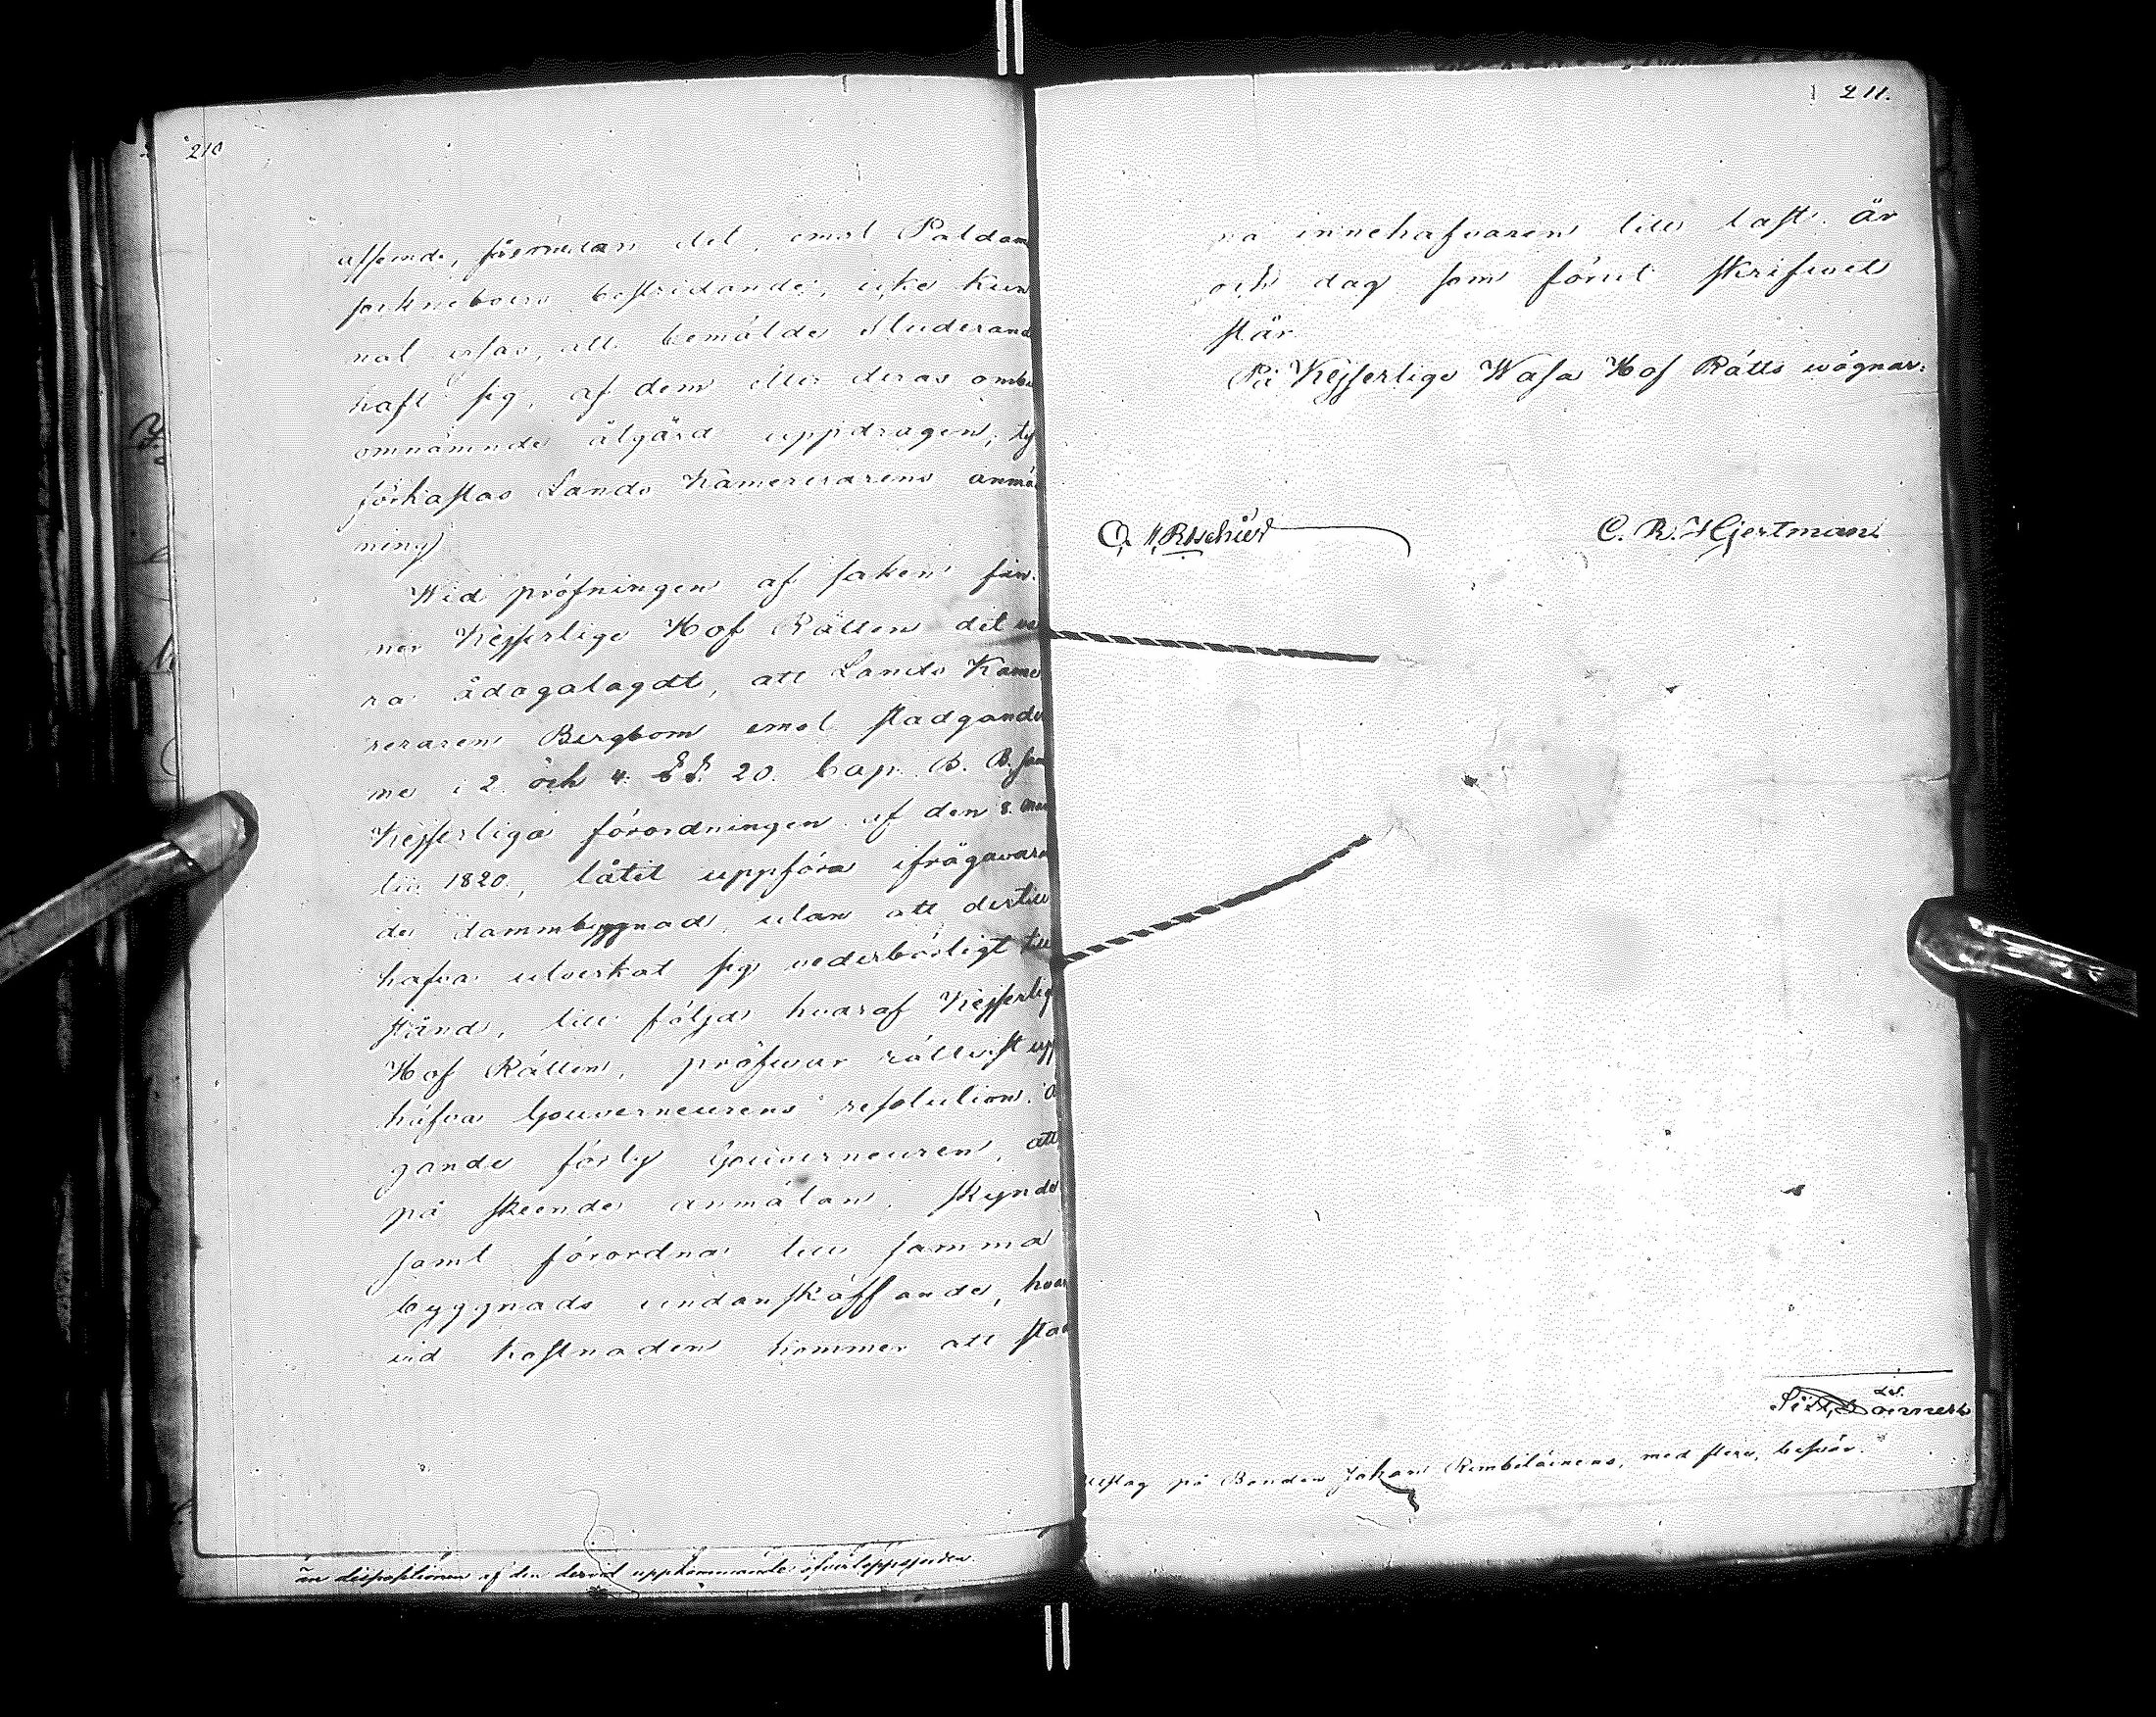 210
afsemde, förmedan det, emot Paldam
sockneboers bestridande, icke kun
nat visas, att bemälde Studerand
haft sig, af dem eller deras ombu
omnämnde åtgärd uppdragen, ty
förkastas Lands Kamererarens anmä
ning)
Wid pröfningen af saken fin-
ner Kejserlige Hof Rätten det va
ra ådagalagdt, att Lands Kame
reraren Bergbom emot stadgande
me i 2. och 4. §§. 20. Cap. B. B. sam
Kejserliga förordningen af den 8. Mar
tii 1820, låtit uppföra ifrågavara
de dammbyggnad, utan att dertill
hafva utverkat sig vederbörligt till
stånd, till följd hvaraf Kejserlig
Hof Rätten, pröfwar rättvist upp
häfva Gouverneurens resolution. Å
gande förty Gouverneuren, att
på skeende anmälan, skynd
samt förordna till samma
byggnads undanskaffande, hvar
vid kostnaden kommer att stad
än dispositionen af den dervid uppkommande öfverloppsjorden.
211.
na innehafvaren till last. År
och dag som förut skrifwet
står.
På Kejserlige Wasa Hof Rätts wägnar:
O. H. Roschier
C. R. Hjertman
Utslag på Bonden Johan Rimbiläinens, med flera, besvär.